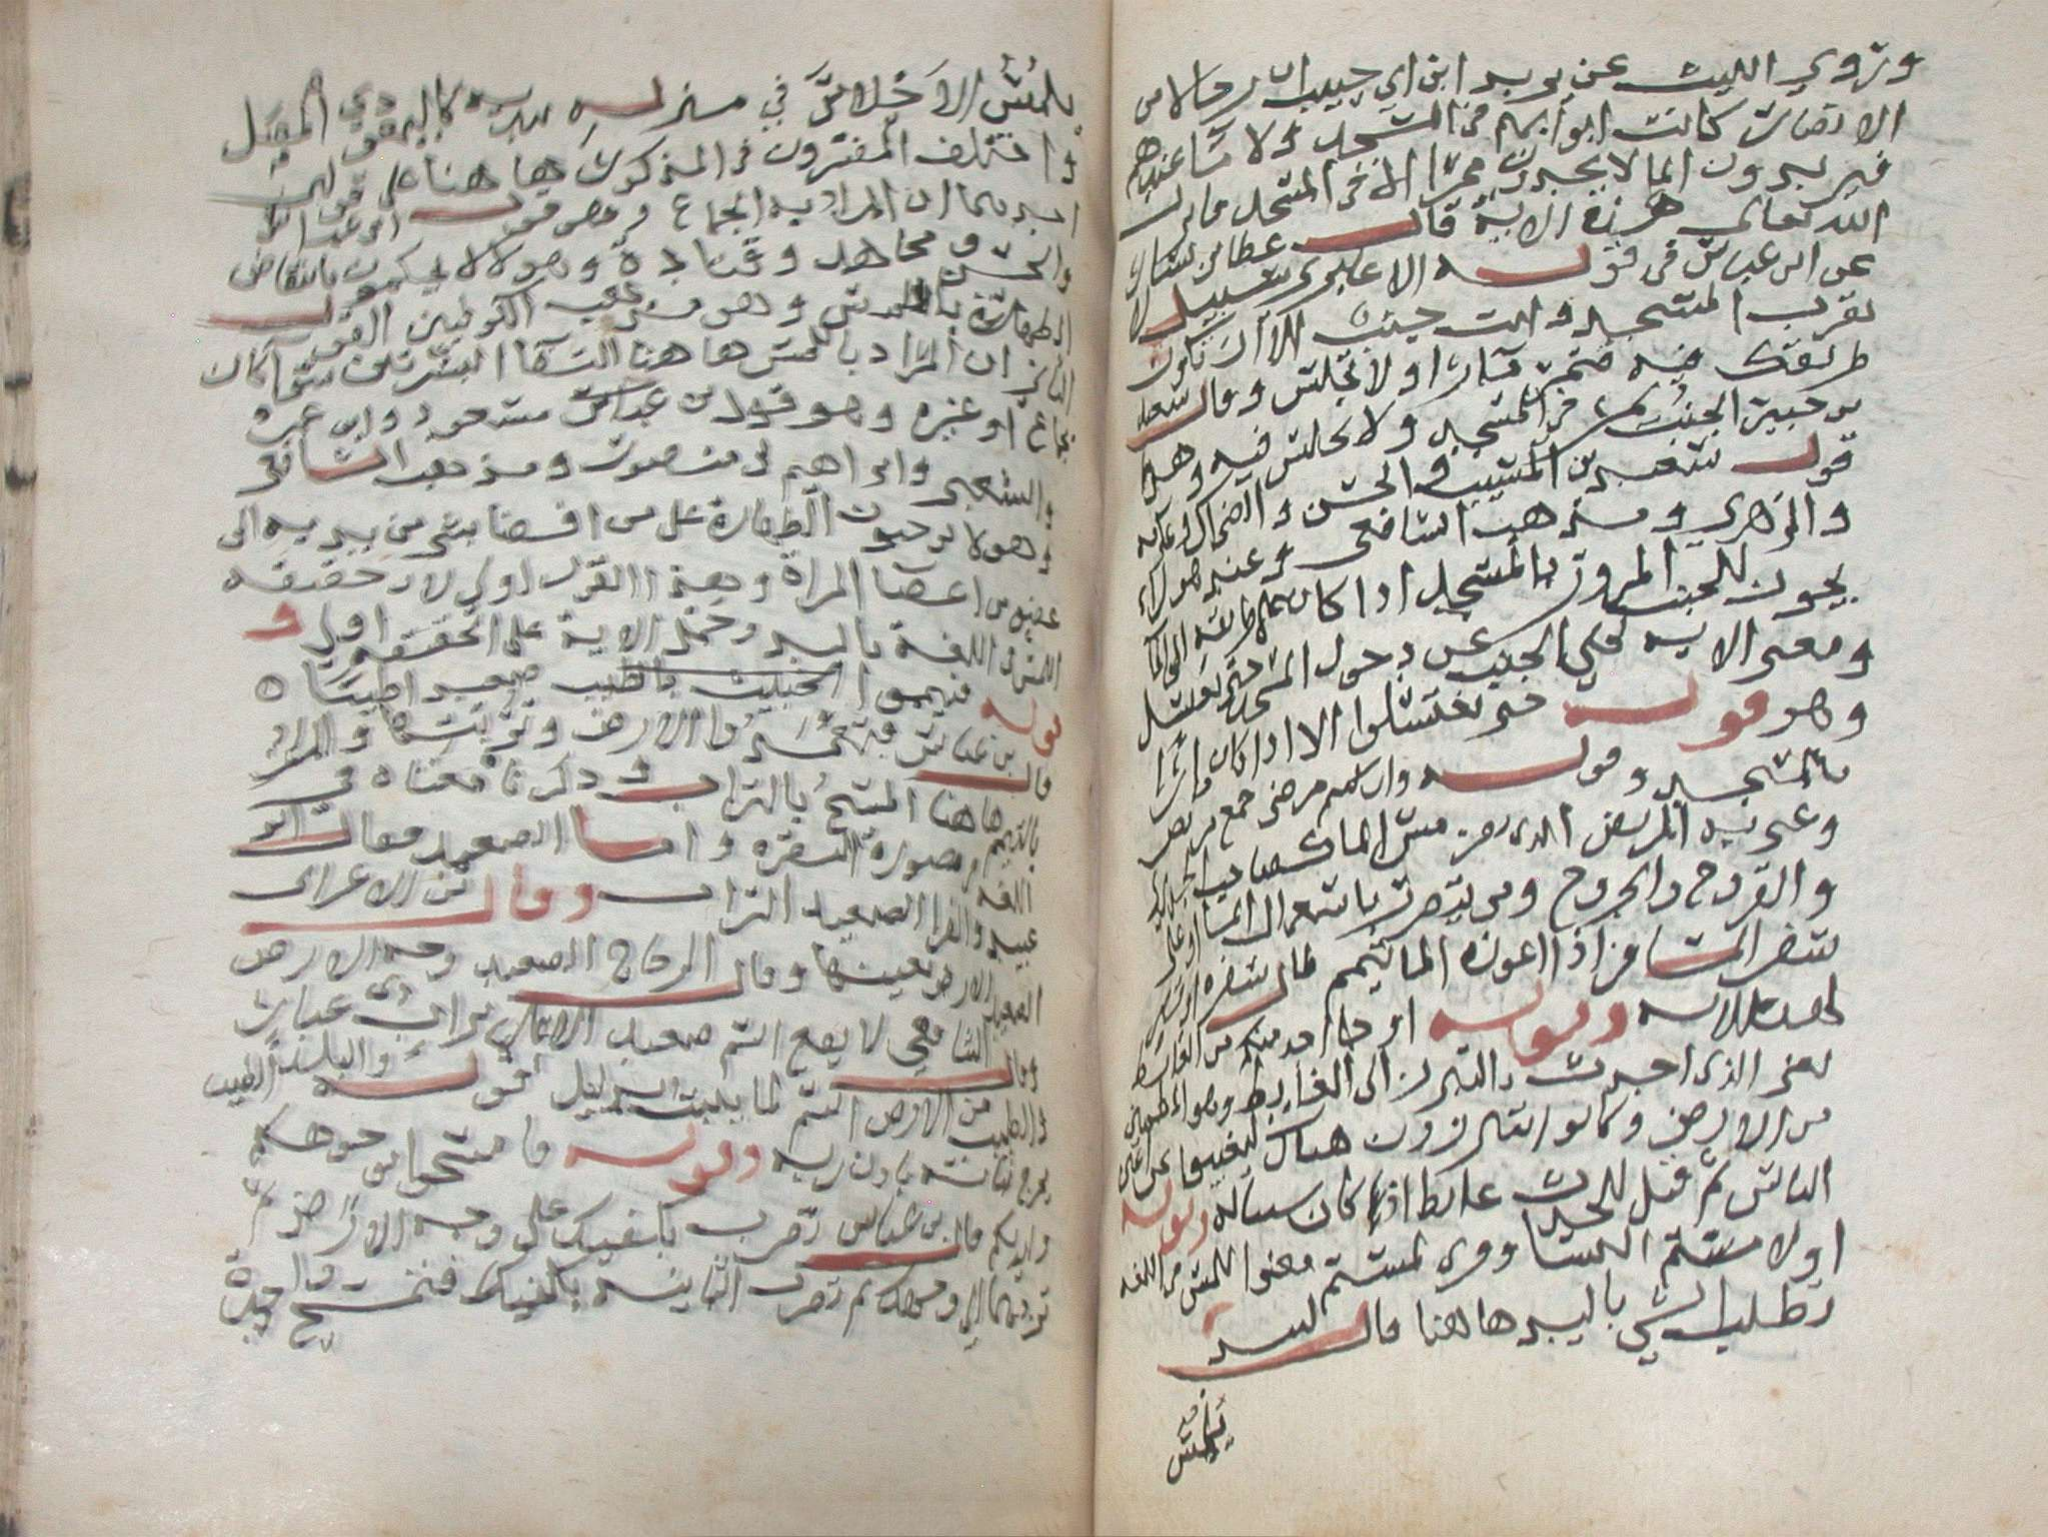 وتروي الليث عن يريد ابن ابي حبيب ان رجالا من
الانصار كانت ابوابهم في المسجد ولا ما عندهم
فيريدون الما لا يجدون ممرا الا في المسجد فانزل
الله تعالى هذه الاية قال عطا بن يسار
عن ابن عباس في قوله الا عابري سبيل لا
تقرب المسجد وانت جنب الا ان تكون
طريقك فيه فتمر مارا ولا تجلس وقال سعيد
بن جبير الجنب يمر في المسجد ولا يجلس فيه وهذا
قول سعيد بن المسيب والحسن والضحاك وعكرمه
والزهري ومذهب الشافعي وعند هولاء
يجوز للجنب المرور بالمسجد اذا كان على طريقه الى الماء
ومعنى الايه نهى الجنب عن دخول المسجد حتى يغتسل
وهو قوله حتى تغتسلوا الا اذا كان مارا
بالمسجد وقوله وان كنتم مرضى جمع مريض
وعنى به المريض الذي يضره مس الما كصاحب الجدري
والقروح والجروح ومن يتضرر باستعمال الما او على
سفر المسافر اذا اعوزه الما تيمم طال سفره او قصر
لهذه الايه وقوله او جا احد منكم من الغايط
يعنى الذي احدث بالتبرز الى الغايط وهو المطمئن
من الارض وكانوا يتبرزون هناك ليغيبوا عن اعين
الناس ثم قيل للحدث غايط اذا كان سببا له وقوله
او لا مستم النسا وقرى لمستم معنى اللمس في اللغه
تطلب الشي باليد هاهنا قال لبيد
يلمس
يلمس الاحلاس في منزله بيديه كاليهودي المصل
واختلف المفسرون في المذكور هاهنا على قولين
احدهما ان المراد به الجماع وهو قول ابن عباس
والحسن ومجاهد وقتادة وهولا لا يحكمون بانتقاض
الطهارة باللمس وهو مذهب الكوفيين القول
الثاني ان المراد باللمس هاهنا التقا البشرتين سوا كان
بجماع او غيره وهو قول بن مسعود وابن عمر
والشعبي وابراهيم ومنصور ومذهب الشافعى
وهولا يوجبون الطهارة على من افضا بشي من بدنه الى
عضو من اعضا المراة وهذا القول اولى لان حقيقه
اللمس في اللغة باليد وحمل الاية على الحقيقه اولى و
قوله فتيمموا صعيدا طيبا
قال بن عباس فتعمدوا الارض وتربتها والمراد
بالتيمم هاهنا التمسح بالتراب وذكرنا معناه في
اللغه في صورة البقره واما الصعيد فقال ابو
عبيد والفرا الصعيد التراب وقال بن الاعرابى
الصعيد الارض بعينها وقال الزجاج الصعيد وجه الارض
وقال الشافعي لا يقع اسم صعيد الا على تراب ذي غبار
والطيب من الارض اسم لما ينبت بدليل قوله والبلد الطيب
يخرج نباته باذن ربه وقوله فامسحوا بوجوهكم
وايديكم قال بن عباس تضرب بكفيك على وجه الارض ثم
ترفعهما الى وجهك ثم تضرب الثانيه بكفيك فتمسح واحدة